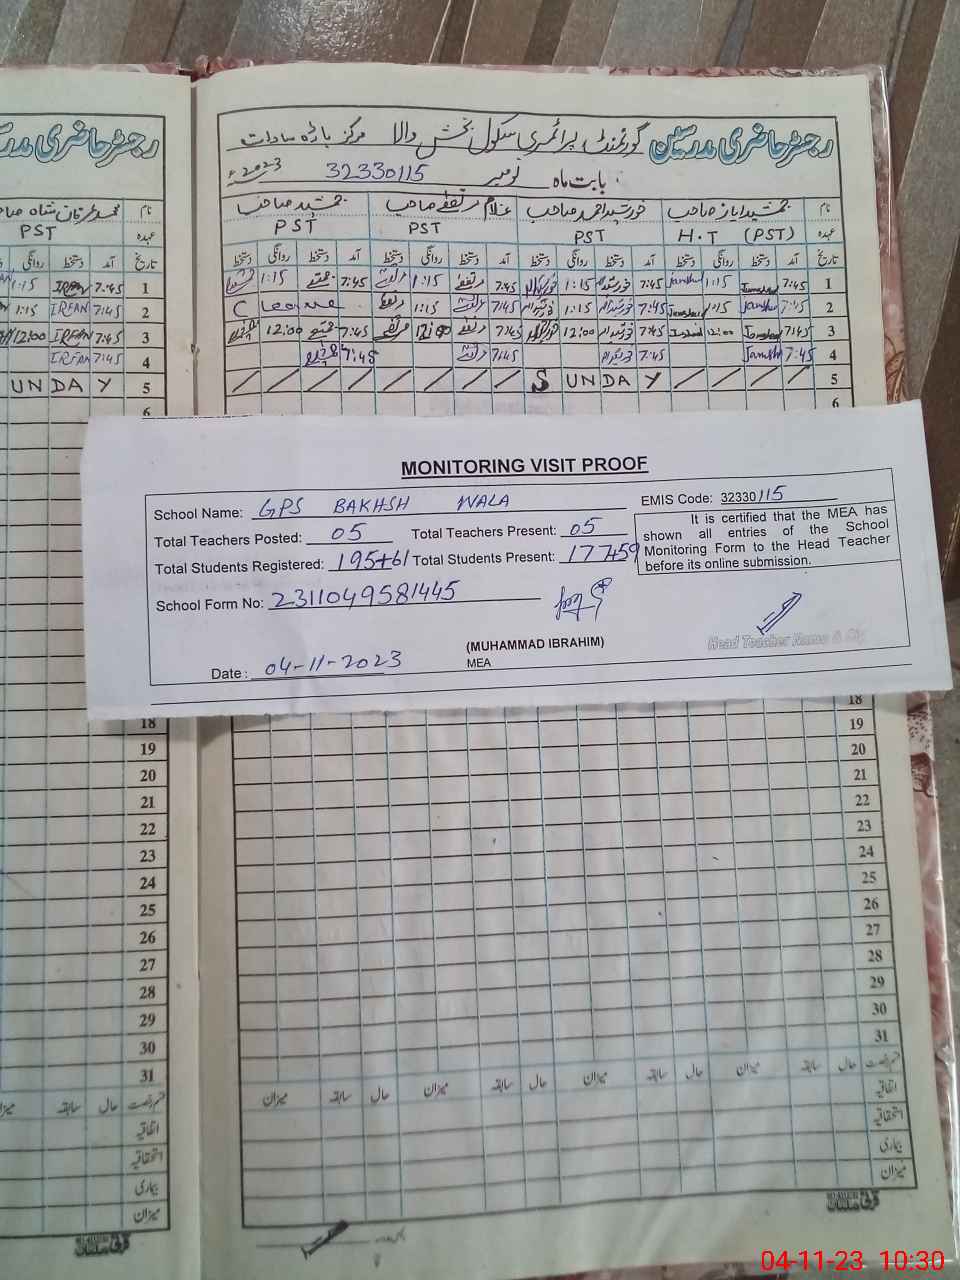 رجسٹر حاضری مدرسین گورنمنٹ پرائمری سکول بخش والا مرکز باڑہ سادات
بابت ماہ نومبر 32330115 2023ء
نام جمشید ایاز صاحب خورشید احمد صاحب غلام مرتضیٰ صاحب جمشید صاحب
عہدہ H.T (PST) PST PST PST
تاریخ آمد دستخط روانگی دستخط آمد دستخط روانگی دستخط آمد دستخط روانگی دستخط آمد دستخط روانگی دستخط
1 7:45 Jamshed 1:15 Jamshed 7:45 1:15 7:45 1:15 7:45 1:15
2 7:45 Jamshed 1:15 Jamshed 7:45 1:15 7:45 1:15 C Leave
3 7:45 Jamshed 12:00 Jamshed 7:45 12:00 7:45 12:00 7:45 12:00
4 7:45 Jamshed 7:45 7:45 7:45
5 S UNDA Y
6
رجسٹر حاضری مدرسین
نام محمد عرفان شاہ صاحب
عہدہ PST
تاریخ آمد دستخط روانگی
1 7:45 IRFAN 1:15
2 7:45 IRFAN 1:15
3 7:45 IRFAN 12:00
4 7:45 IRFAN
5 UNDA Y
6
MONITORING VISIT PROOF
School Name: GPS BAKHSH WALA
EMIS Code: 32330115
Total Teachers Posted: 05 Total Teachers Present: 05
Total Students Registered: 195+61 Total Students Present: 177+59
It is certified that the MEA has
shown all entries of the School
Monitoring Form to the Head Teacher
before its online submission.
School Form No: 2311049581445
(MUHAMMAD IBRAHIM)
MEA
Head Teacher Name &
Date: 04-11-2023
18
19
20
21
22
23
24
25
26
27
28
29
30
31
حال سابقہ میزان
اتفاقیہ
استحقاقیہ
بیماری
میزان
18
19
20
21
22
23
24
25
26
27
28
29
30
31
قسم رخصت حال سابقہ میزان حال سابقہ میزان حال سابقہ میزان حال سابقہ میزان
اتفاقیہ
استحقاقیہ
بیماری
میزان
04-11-23 10:30